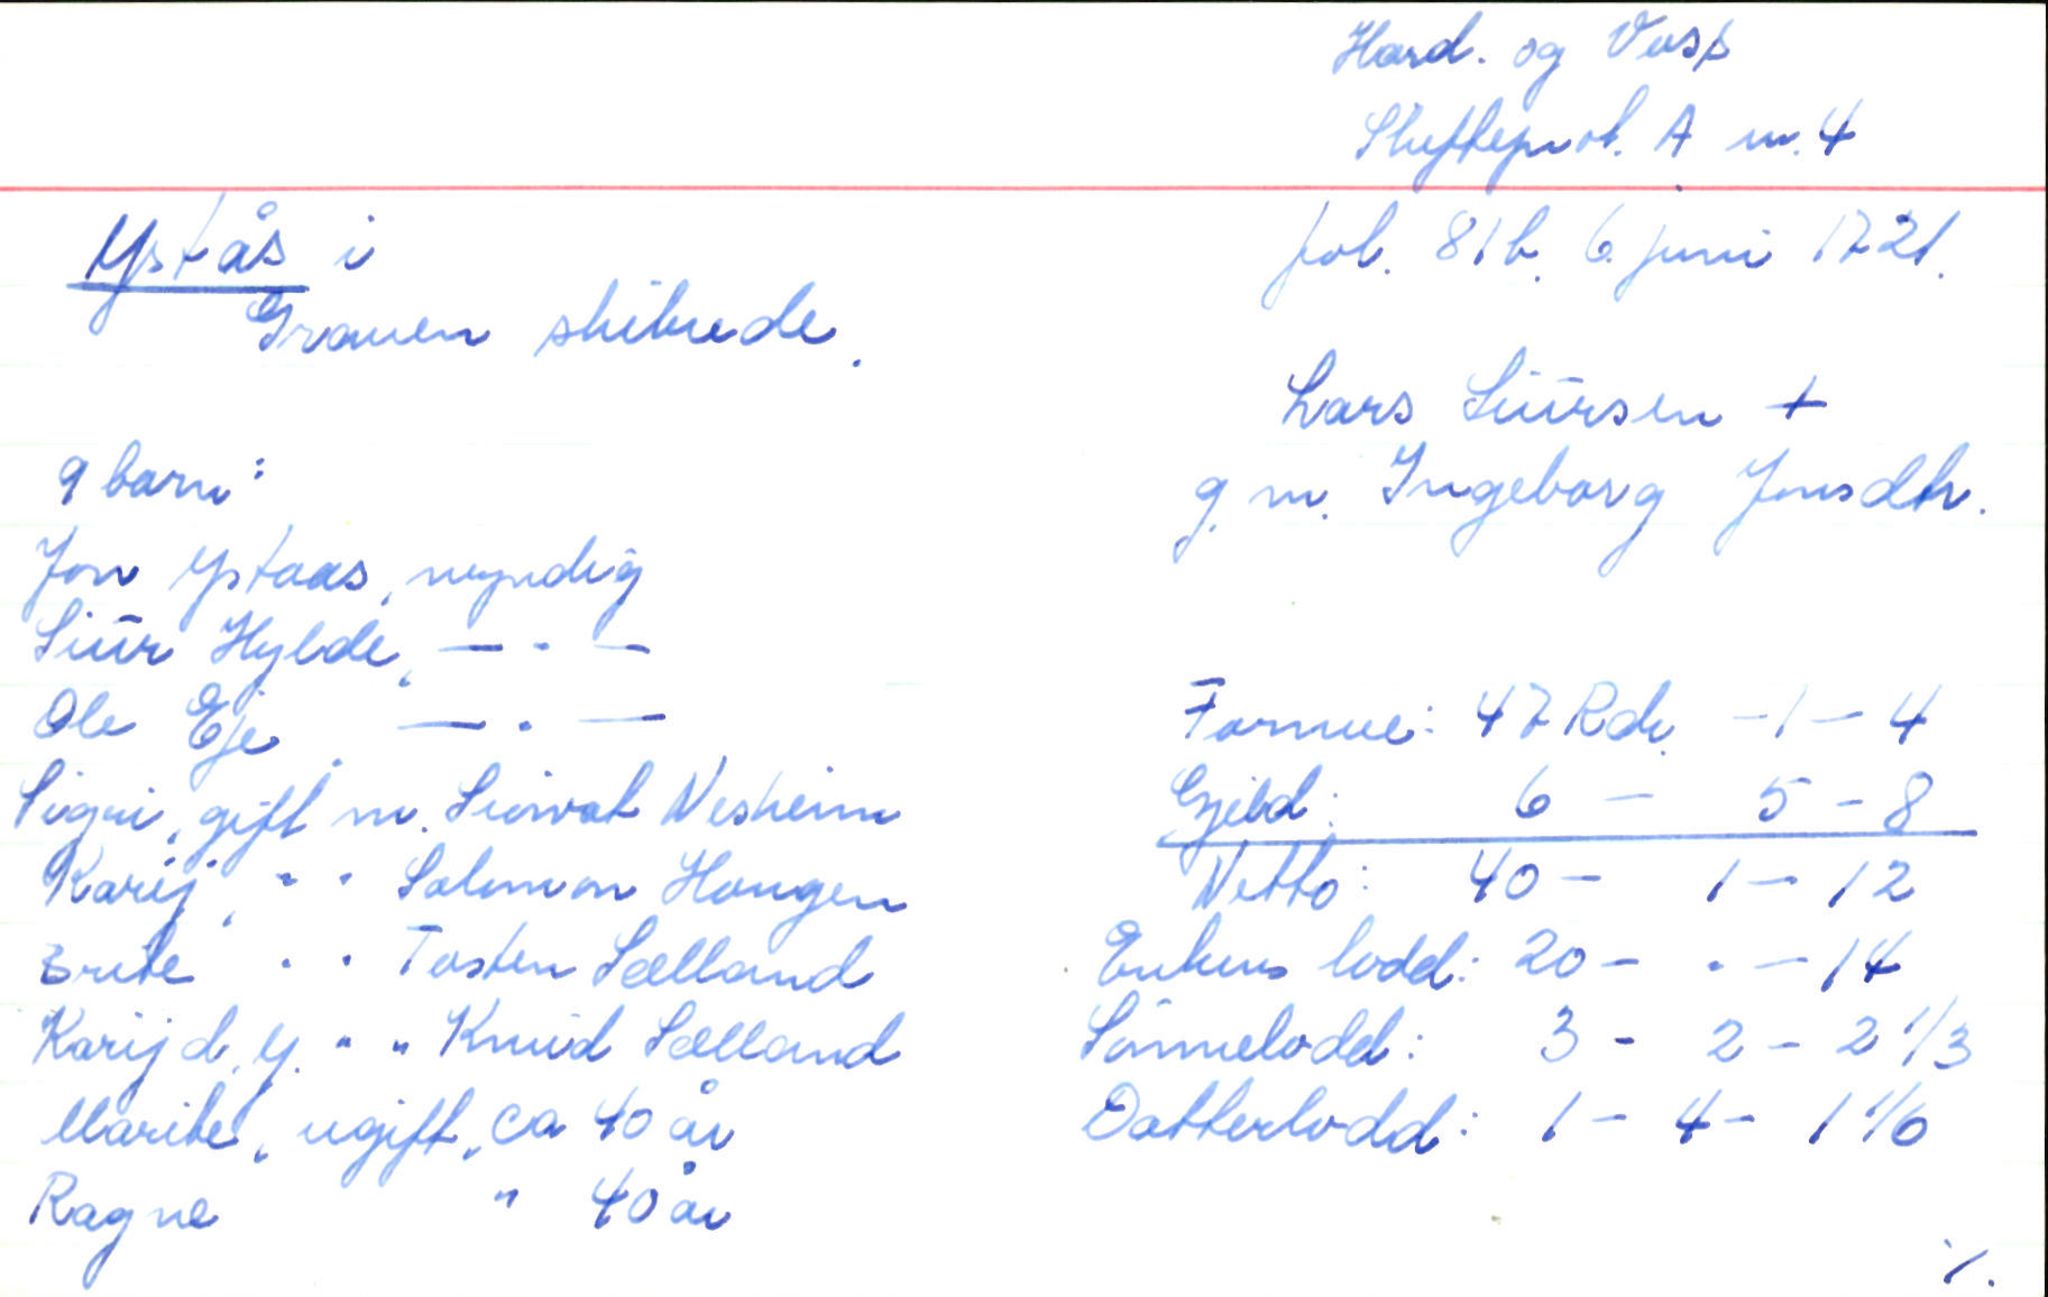 Hard. og Voss
Skifteprot. A nr. 4
fol. 81b. 6. juni 1721.
Ystås i
Graven skibrede.
Lars Siūrsen +
g. m. Ingeborg Jonsdtr.
9 barn:
Jon Ystaas, myndig
Siūr Hylde, — · —
Ole Eje, — · —
Sigri, gift m. Siovat Nesheim
Karij, " " Salomon Hougen
Brite " " Tosten Sælland
Karij d. y. " " Knud Sælland
Marite, ugift, ca 40 år
Ragne " 40 år
Formue: 47 Rdr. - 1 - 4
Gjeld: 6 - 5 - 8
Netto: 40 - 1 - 12
Enkens lodd: 20 - . - 14
Sönnelodd: 3 - 2 - 2 1/3
Datterlodd: 1 - 4 - 1 1/6
./.